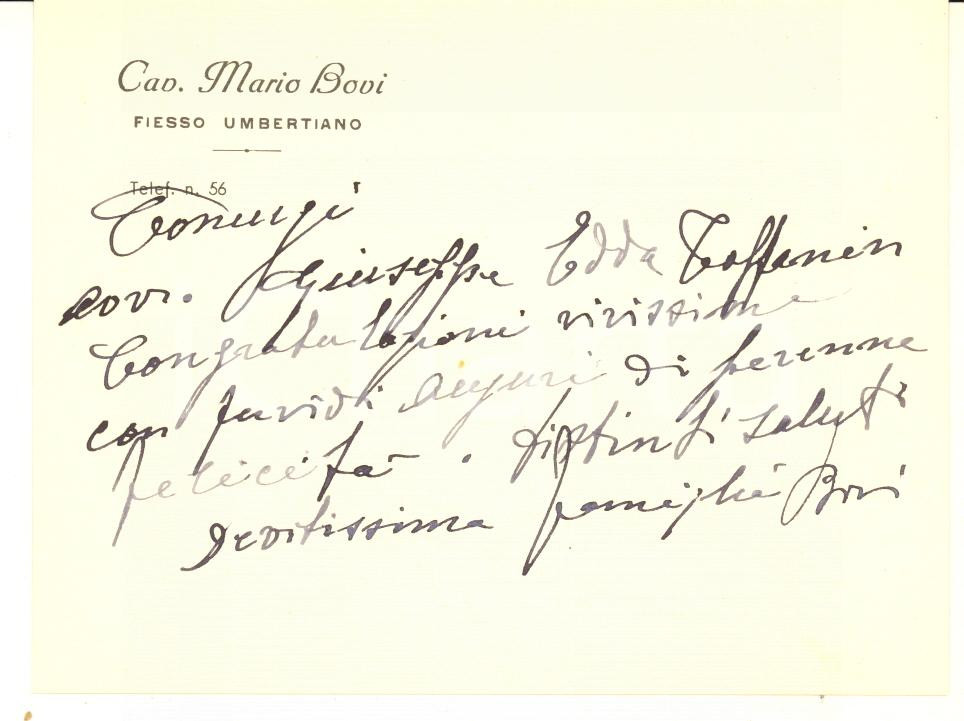 Cav. Mario Bovi
FIESSO UMBERTIANO
Telef. n. 56
Coniugi
avv. Giuseppe Edda Toffanin
Congratulazioni vivissime
con fervidi auguri di perenne
felicità. distinti saluti
devotissima famiglia Bovi